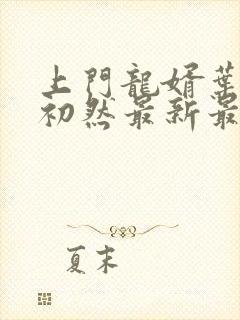 上門龍婿葉
初然最新最
夏末